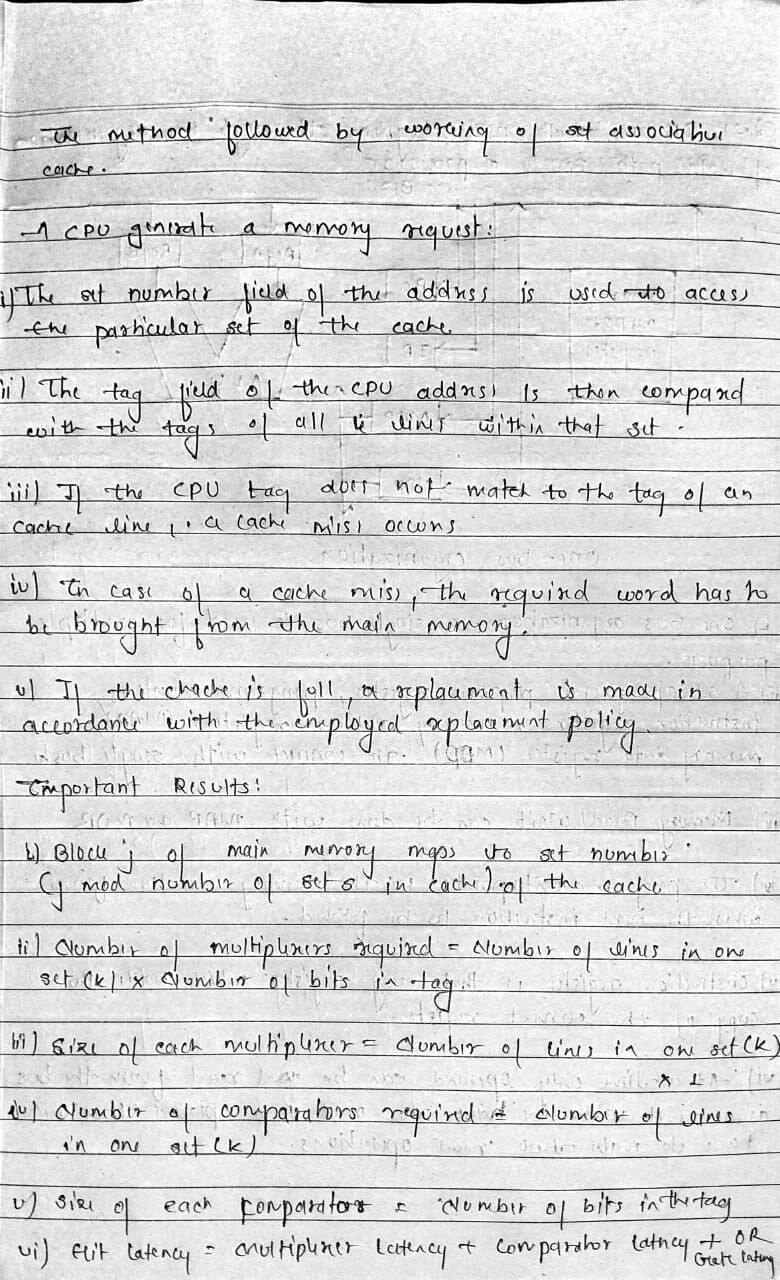 The method followed by working of set associative
cache.
→ CPU generate a memory request:
i) The set number field of the address is used to access
the particular set of the cache
ii) The tag field of the CPU address is then compared
with the tags of all lines within that set.
iii) If the CPU tag does not match to the tag of an
cache line, a cache miss occurs
iv) In case of a cache miss, the required word has to
be brought from the main memory.
v) If the chache is full, a replacement is made in
accordance with the employed replacement policy.
Important Results:
i) Block j of main memory maps to set number
(j mod number of sets in cache) of the cache
ii) Number of multiplexers required = Number of lines in one
set (k) x Number of bits in tag
iii) Size of each multiplexer = Number of lines in one set (k)
x 1
iv) Number of comparators required = Number of lines
in one set (k)
v) Size of each comparators = Number of bits in the tag
vi) Hit latency = multiplexer latency + comparator latncy + OR
Gate latency